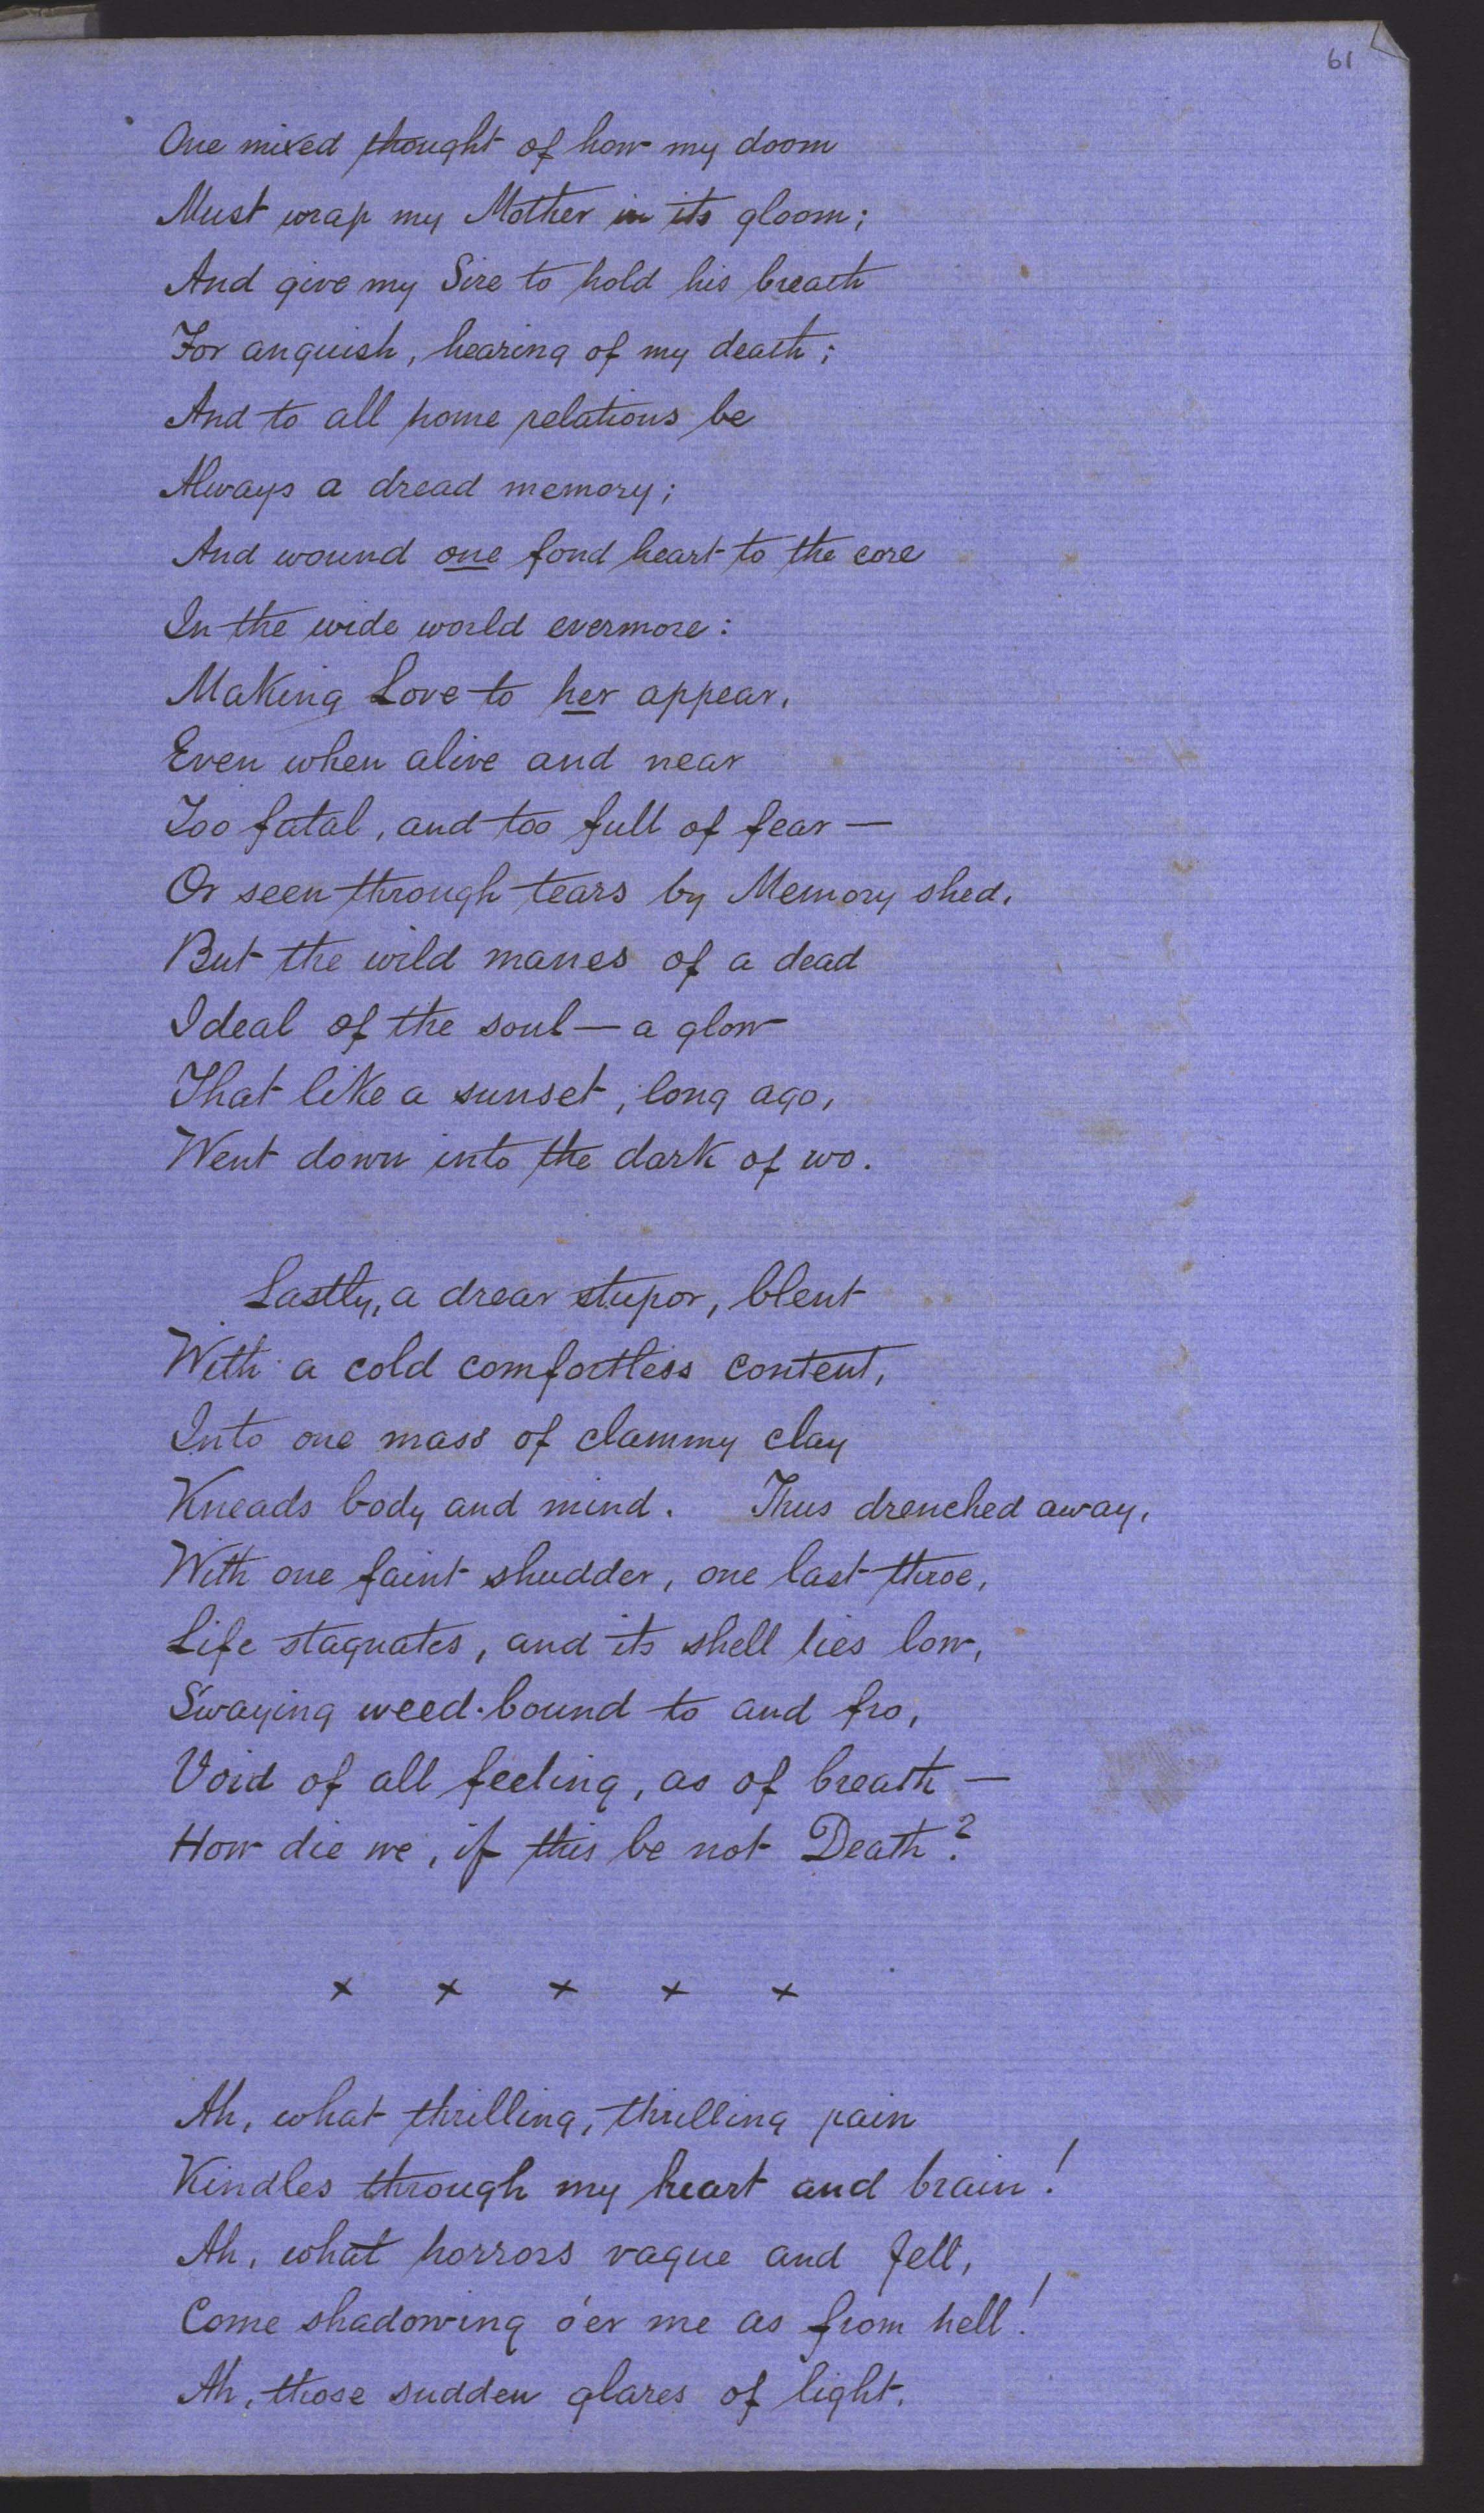 61
One mixed thought of how my doom
Must wrap my Mother in its gloom;
And give my Sire to hold his breath
For anguish, hearing of my death;
And to all home relations be
Always a dread memory;
And wound one fond heart to the core
In the wide world evermore:
Making Love to her appear,
Even when alive and near
Too fatal, and too full of fear—
Or seen through tears by Memory shed,
But the wild manes of a dead
Ideal of the soul—a glow
That like a sunset, long ago,
Went down into the dark of wo.
Lastly, a drear stupor, blent
With a cold comfortless content,
Into one mass of clammy clay
Kneads body and mind. Thus drenched away,
With one faint shudder, one last throe,
Life stagnates, and its shell lies low,
Swaying weed-bound to and fro,
Void of all feeling, as of breath—
How die we, if this be not Death?
x x x x x
Ah, what thrilling, thrilling pain
Kindles through my heart and brain!
Ah, what horrors vague and fell,
Come shadowing o'er me as from hell!
Ah, those sudden glares of light,